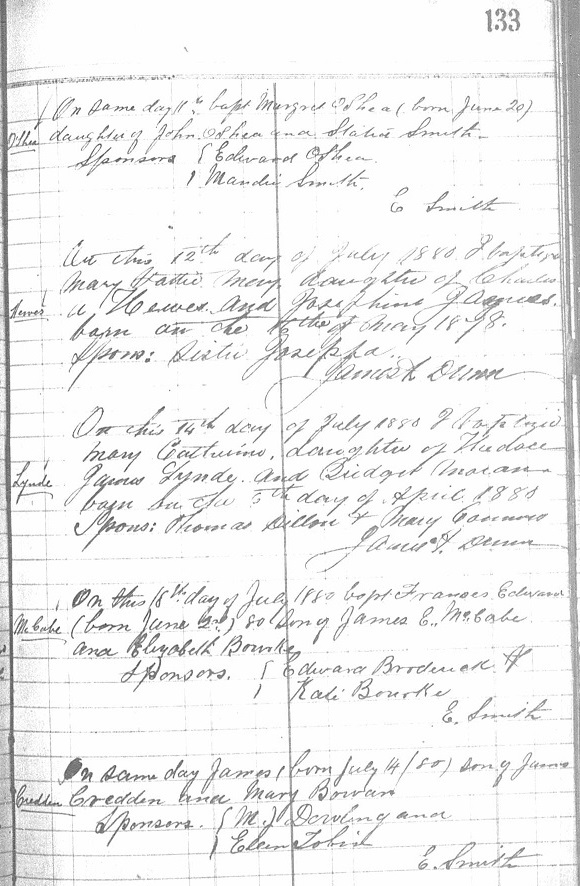 133
O'Shea
On same day 11th bapt Margret O'Shea (born June 20)
daughter of John O'Shea and Statia Smith
Sponsors { Edward O'Shea
Smith.
E Smith
On this 12th day of July 1880 I baptize
Mary daughter of Charles
Hewes
A Hewes and Josephine
born on the of May 1878.
Spons: Sister Josepha.
James H Dunn
On this 14th day of July 1880 I baptize
Mary Catherine, daughter of
Lynde
James Lynde and Bridget Moran
born on the 5th day of April 1880
Spons: Thomas Dillon & Mary Connors
James H. Dunn
On this 18th day of July 1880 bapt Frances Edward
McCabe
(born June 2nd) 80 son of James E. McCabe
and Elizabeth Bourke
Sponsors. { Edward Broderick &
Kate Bourke
E. Smith
On same day James (born July 14/80) son of James
Credden
Credden and Mary Bowan
Sponsors. { M. J Dowling and
Ellen Tobin
E. Smith